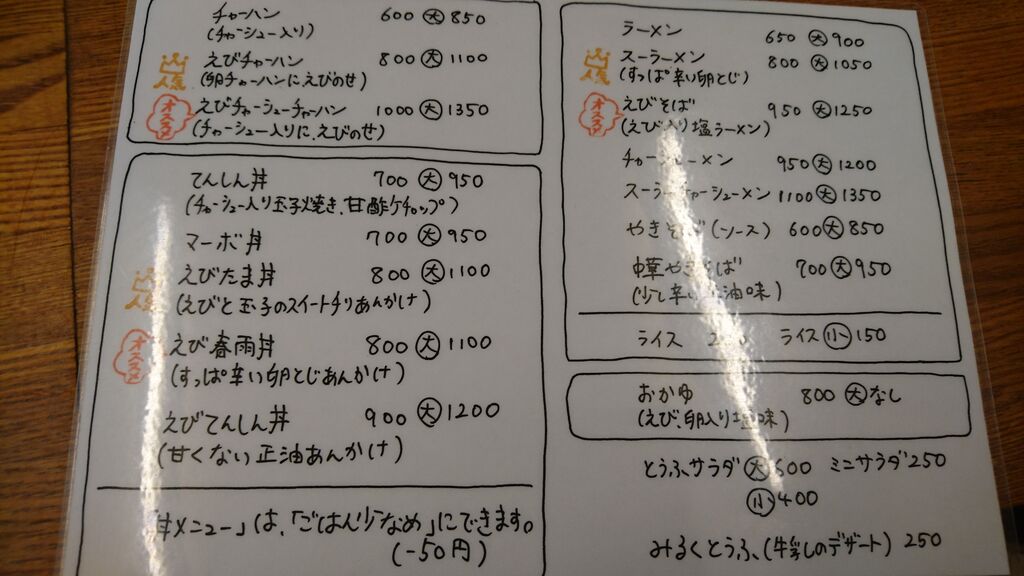 チャーハン 600 大 850
(チャーシュー入り)
人気 えびチャーハン 800 大 1100
(卵チャーハンにえびのせ)
オススメ えびチャーシューチャーハン 1000 大 1350
(チャーシュー入りに、えびのせ)
てんしん丼 700 大 950
(チャーシュー入り玉子焼き、甘酢ケチャップ)
マーボ丼 700 大 950
人気 えびたま丼 800 大 1100
(えびと玉子のスイートチリあんかけ)
オススメ えび春雨丼 800 大 1100
(すっぱ辛い卵とじあんかけ)
えびてんしん丼 900 大 1200
(甘くない正油あんかけ)
「丼メニュー」は、「ごはん少なめ」にできます。
(-50円)
ラーメン 650 大 900
人気 スーラーメン 800 大 1050
(すっぱ辛い卵とじ)
オススメ えびそば 950 大 1250
(えび入り塩ラーメン)
チャーシューメン 950 大 1200
スーラーチャーシューメン 1100 大 1350
やきそば(ソース) 600 大 850
中華やきそば 700 大 950
(少し辛い正油味)
ライス ライス 小 150
おかゆ 800 大 なし
(えび、卵入り塩味)
とうふサラダ 大 600 ミニサラダ 250
小 400
みるくとうふ(牛乳しのデザート) 250